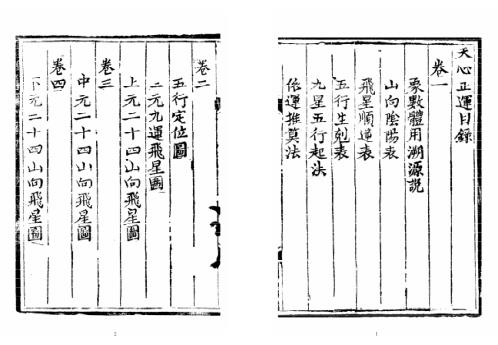 天心正運目錄
卷一
象數體用溯源說
山向陰陽表
飛星順逆表
五行生剋表
九星五行起法
依運推算法
1
卷二
五行定位圖
三元九運飛星圖
上元二十四山向飛星圖
卷三
中元二十四山向飛星圖
卷四
下元二十四山向飛星圖
2